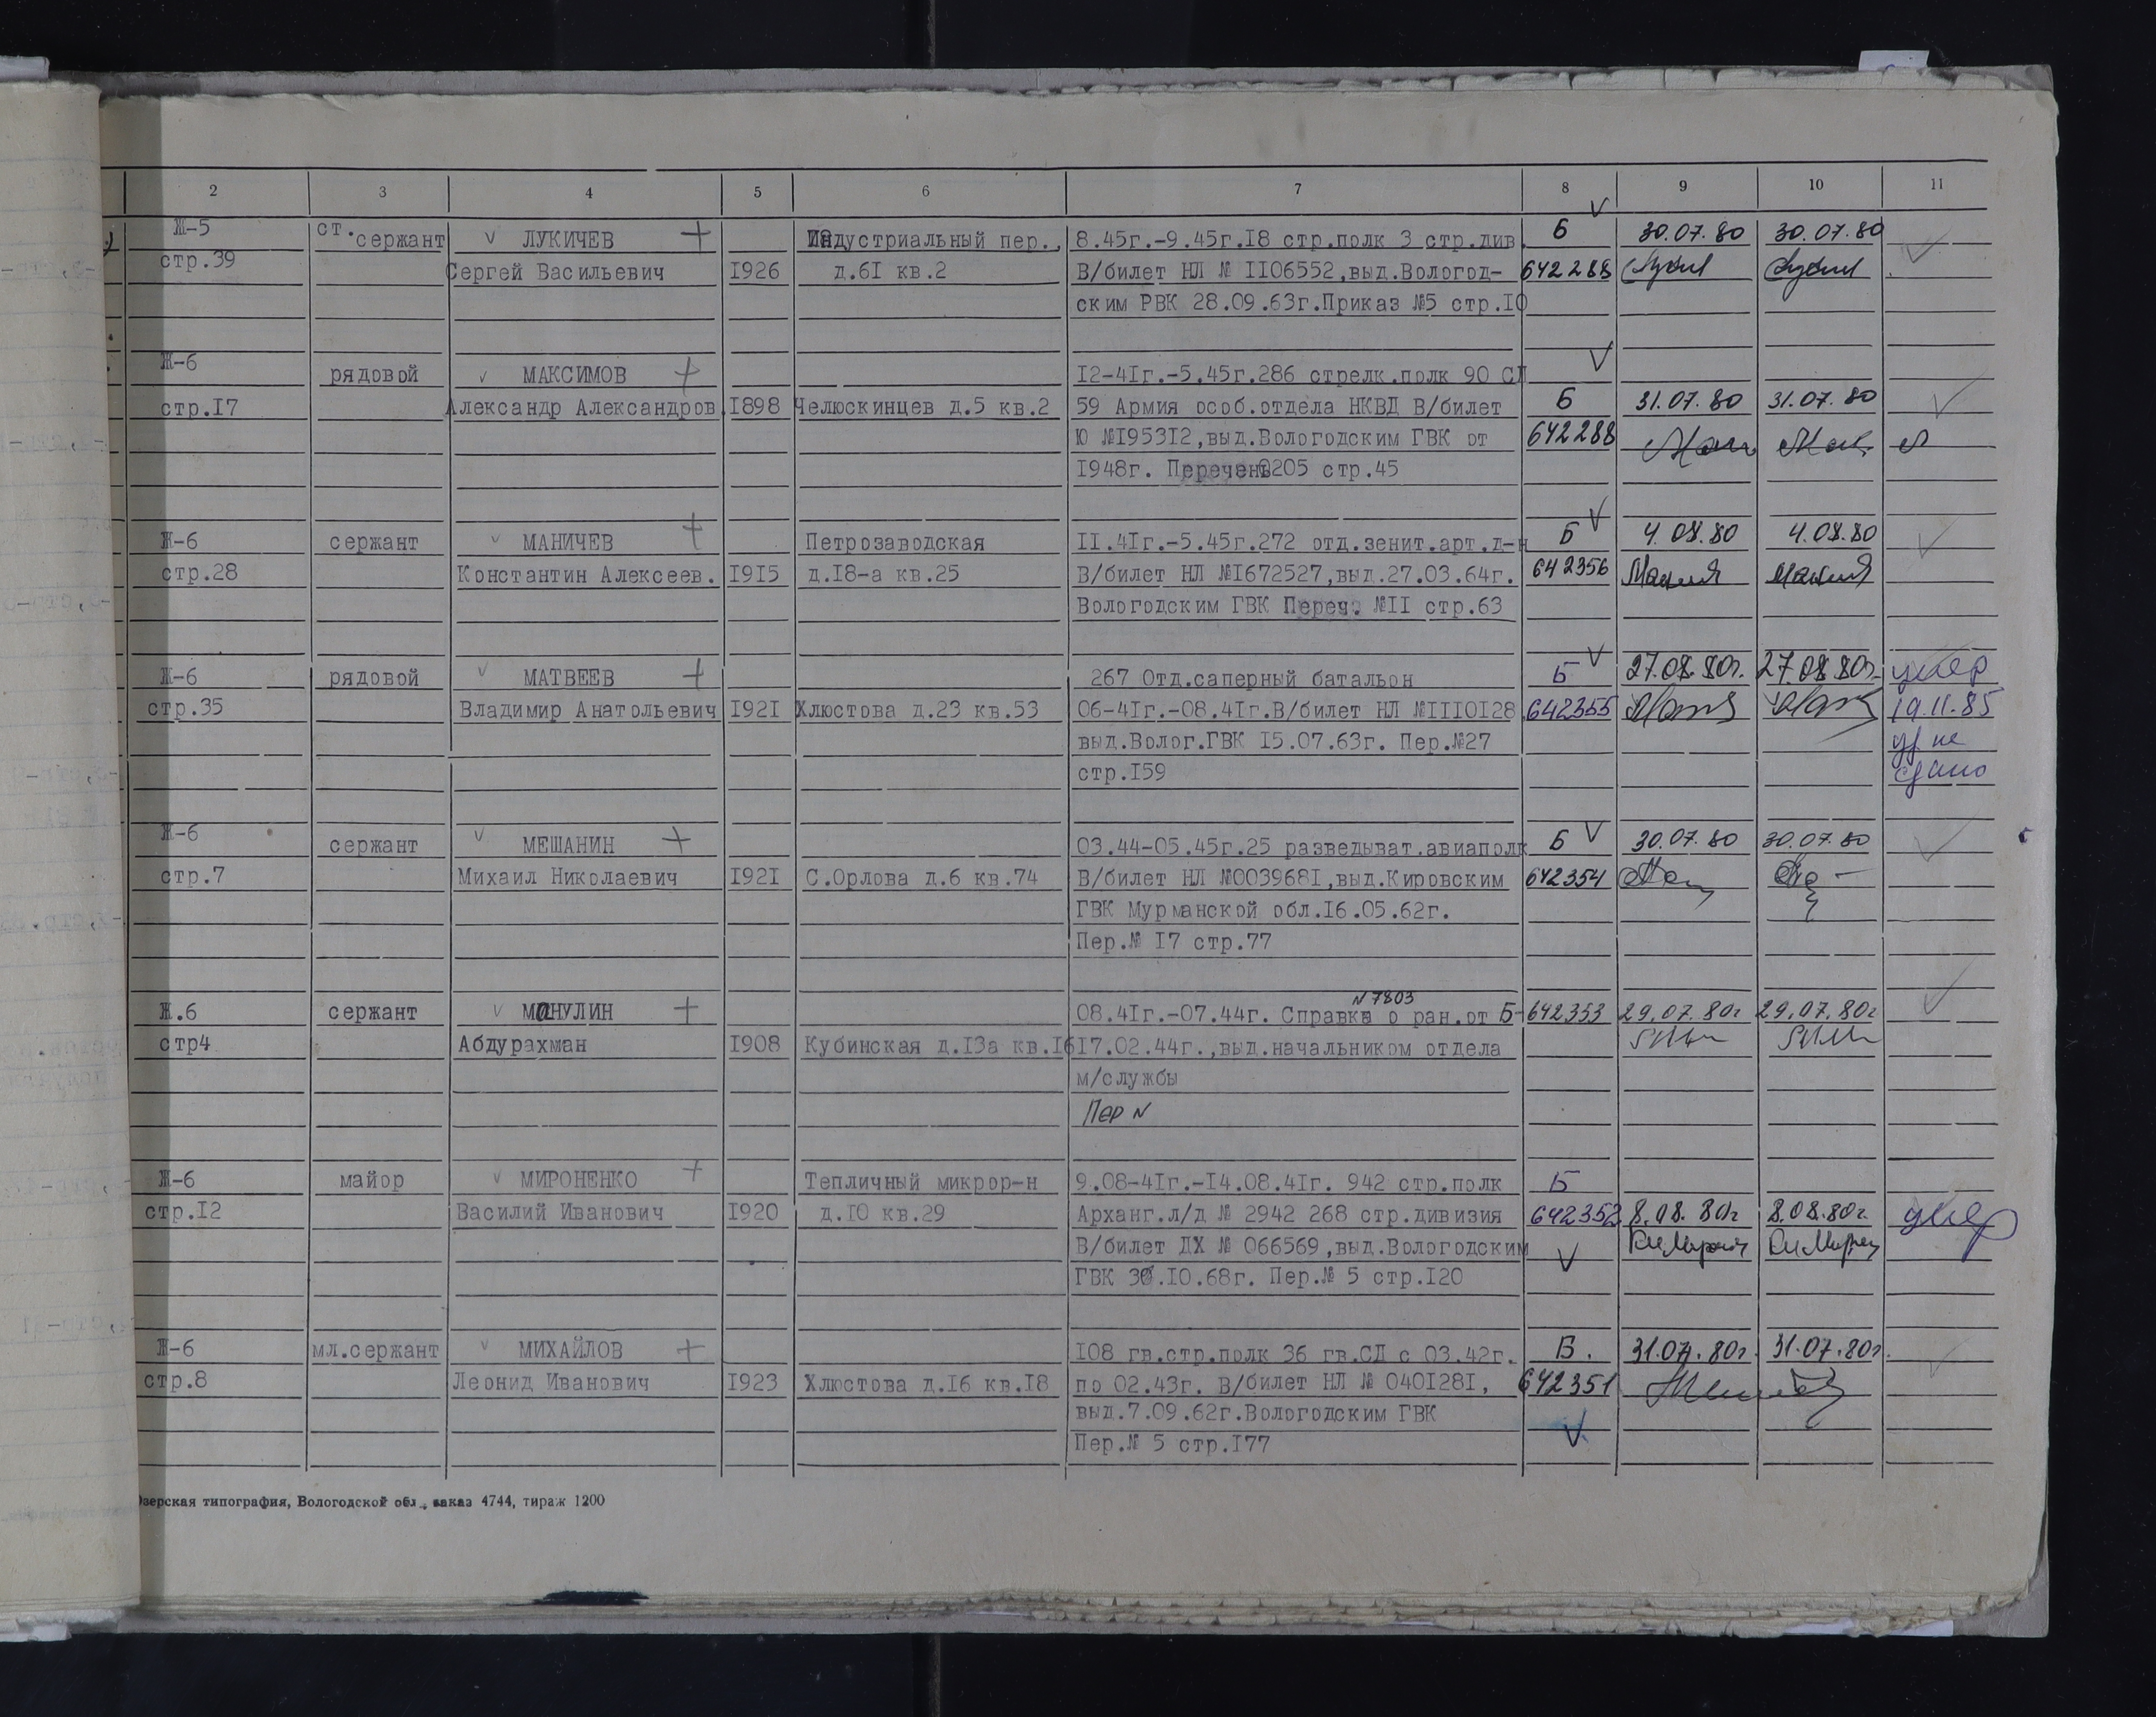 2 3 4 5 6 7 8 9 10 11
Ж-5 ст.сержант ЛУКИЧЕВ + Индустриальный пер., 8.45г.-9.45г.I8 стр.полк 3 стр.див. Б 30.07.80 30.07.80
стр.39 Сергей Васильевич I926 д.6I кв.2 В/билет НЛ № II06552,выд.Вологод- 642288
ским РВК 28.09.63г.Приказ №5 стр.I0
Ж-6 рядовой МАКСИМОВ + I2-4Iг.-5.45г.286 стрелк.полк 90 СД
стр.I7 Александр Александров. I898 Челюскинцев д.5 кв.2 59 Армия особ.отдела НКВД В/билет Б 31.07.80 31.07.80
Ю №I953I2,выд.Вологодским ГВК от 642288
I948г. Перечень 0205 стр.45
Ж-6 сержант МАНИЧЕВ + Петрозаводская II.4Iг.-5.45г.272 отд.зенит.арт.д-н Б 4.08.80 4.08.80
стр.28 Константин Алексеев. I9I5 д.I8-а кв.25 В/билет НЛ №I672527,выд.27.03.64г. 642356
Вологодским ГВК Переч. №II стр.63
Ж-6 рядовой МАТВЕЕВ + 267 Отд.саперный батальон Б 27.08.80г. 27.08.80г. умер
стр.35 Владимир Анатольевич I92I Хлюстова д.23 кв.53 06-4Iг.-08.4Iг.В/билет НЛ №III0I28 642355 19.11.85
выд.Волог.ГВК I5.07.63г. Пер.№27 уд. не
стр.I59 сдано
Ж-6 сержант МЕШАНИН + 03.44-05.45г.25 разведыват.авиаполк Б 30.07.80 30.07.80
стр.7 Михаил Николаевич I92I С.Орлова д.6 кв.74 В/билет НЛ №003968I,выд.Кировским 642354
ГВК Мурманской обл.I6.05.62г.
Пер.№ I7 стр.77
N 7803
Ж.6 сержант МАНУЛИН + 08.4Iг.-07.44г. Справка о ран.от Б-642353 29.07.80г 29.07.80г
стр4 Абдурахман I908 Кубинская д.I3а кв.I6 I7.02.44г.,выд.начальником отдела
м/службы
Пер N
Ж-6 майор МИРОНЕНКО + Тепличный микрор-н 9.08-4Iг.-I4.08.4Iг. 942 стр.полк Б
стр.I2 Василий Иванович I920 д.I0 кв.29 Арханг.л/д № 2942 268 стр.дивизия 642352 8.08.80г 8.08.80г. умер
В/билет ДХ № 066569,выд.Вологодским
ГВК 30.I0.68г. Пер.№ 5 стр.I20
Ж-6 мл.сержант МИХАЙЛОВ + I08 гв.стр.полк 36 гв.СД с 03.42г. Б. 31.07.80г. 31.07.80г.
стр.8 Леонид Иванович I923 Хлюстова д.I6 кв.I8 по 02.43г. В/билет НЛ № 040I28I, 642351
выд.7.09.62г.Вологодским ГВК
Пер.№ 5 стр.I77
зерская типография, Вологодской обл., заказ 4744, тираж 1200